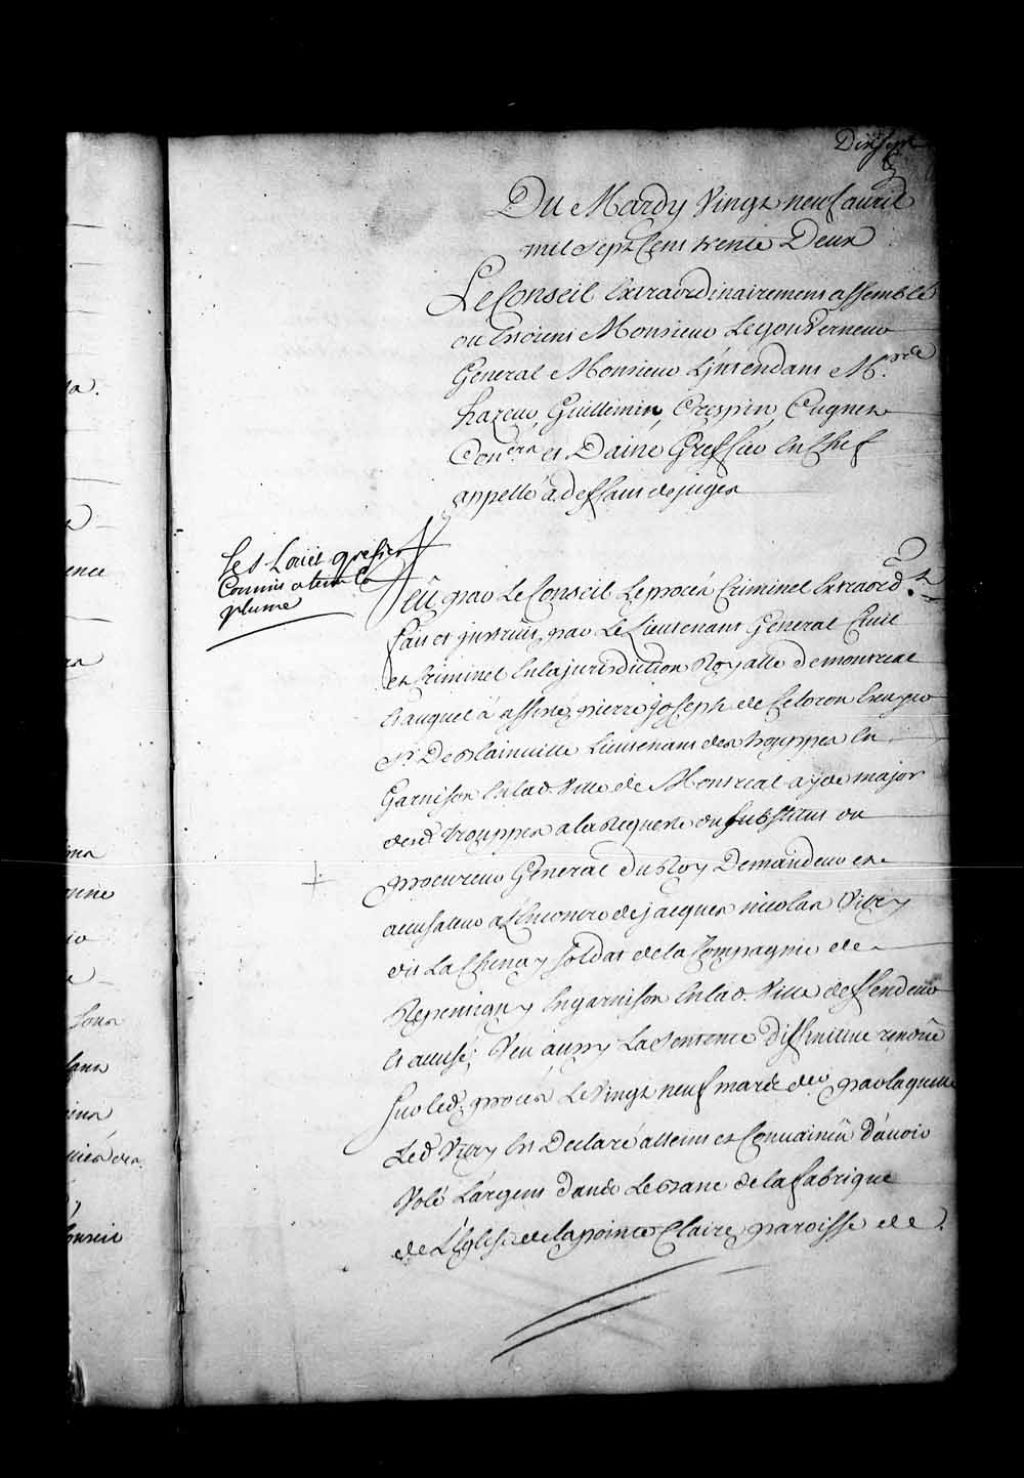 Dixsept
Du Mardy Vingt neuf auril
mil sept Cens trente Deux
Le Conseil Extraordinairement assemblé
ou Estoient Monsieur Le gouVerneur
General Monsieur L'jntendant Mrs
hazeur, Guillimin, Crespin, Cugnet
Coners et Daine Greffier En Chef
appellé a deffaut de juges
Le Sr Loüet grefier
Commis a tenu la
plume
Veü par Le Conseil Le procés Criminel Extraord.
fait et jnstruit par Le Lieutenant General Ciuil
et Criminel En la jurisdiction Royalle de montreal
Auquel a assisté pierre joseph de Celoron Ecuyer
Sr De Blainuille Lieutenant des trouppes En
Garnison En lad. Ville de Montreal ayde major
desd. trouppes a la Requeste du substitut du
procureur General du Roy Demandeur et
accusateur a L'Encontre de jacques nicolas Vitry
dit La Chenay soldat de la Compagnie de
Repentigny En garnison En lad. Ville deffendeur
et accusé, Veu aussy La Sentence diffinitiue rendüe
sur led. procés Le Vingt neuf mars der par laquelle
Led. Vitry Est Declaré atteint et Conuaincu d'auoir
Volé L'argent dans Le Banc de la fabrique
de L'Eglise de la pointe Claire, paroisse de